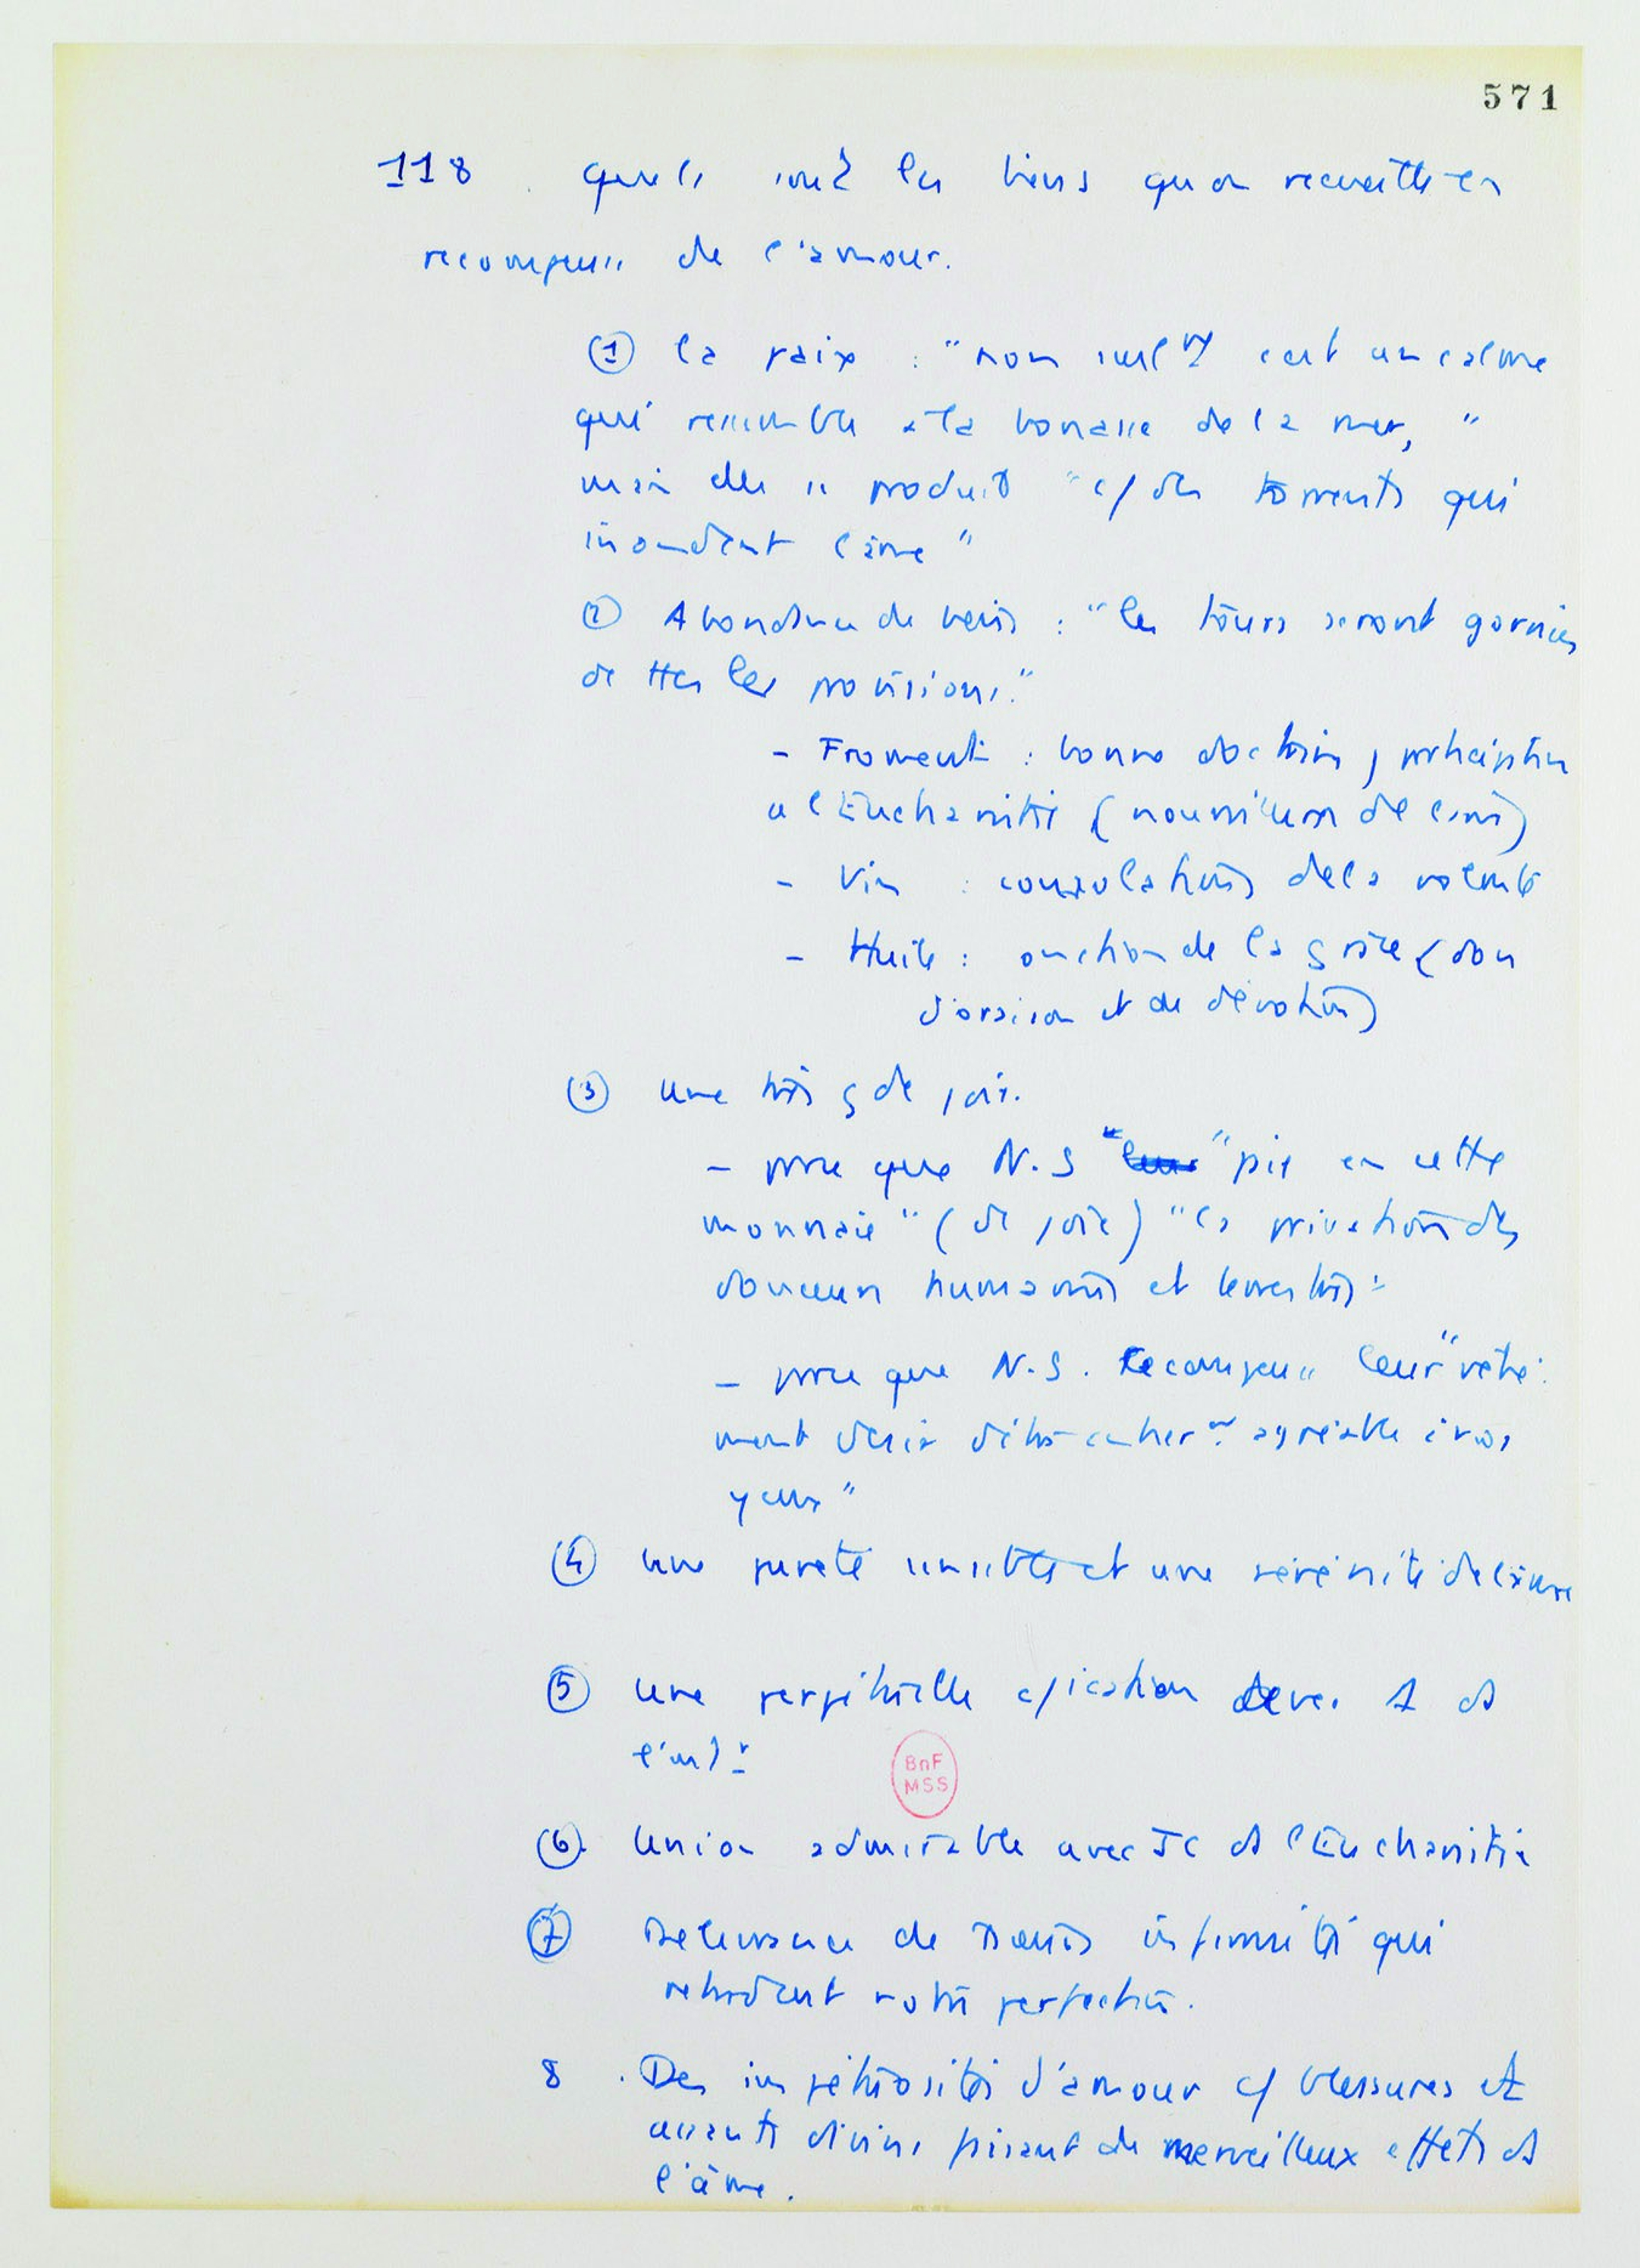 571
118. quels sont les biens qu on recueille en
recompense de l'amour.
① la paix : "non seult c'est un calme
qui ressemble à la bonasse de la mer, "
mais elle se produit "c/ des torrents qui
inondent l'âme"
② Abondance de biens : "les tours seront garnies
de ttes les provisions."
- Froment : bonne doctrine, participation
a l'Eucharistie (nourriture de
- Vin : consolations de la volonté
- Huile : onction de la grâce (don
d'oraison et de dévotion)
③ une très gde joie.
- parce que N.S "paie en cette
monnaie" (de joie) "la privation des
douceurs humaines et terrestres"
- parce que N.S. recompense leur "vête-
ment agréable à vos
yeux"
④ une pureté sensible et une sérénité de l'âme
⑤ une perpétuelle c/ication avec 1 ds
l'intr
BnF
MSS
⑥ Union admirable avec JC ds l'Eucharistie
⑦ Delivrance de infirmités qui
retardent notre perfection.
8. Des impétuosités d'amour c/ blessures et
assauts divins faisant de merveilleux effets ds
l'âme.